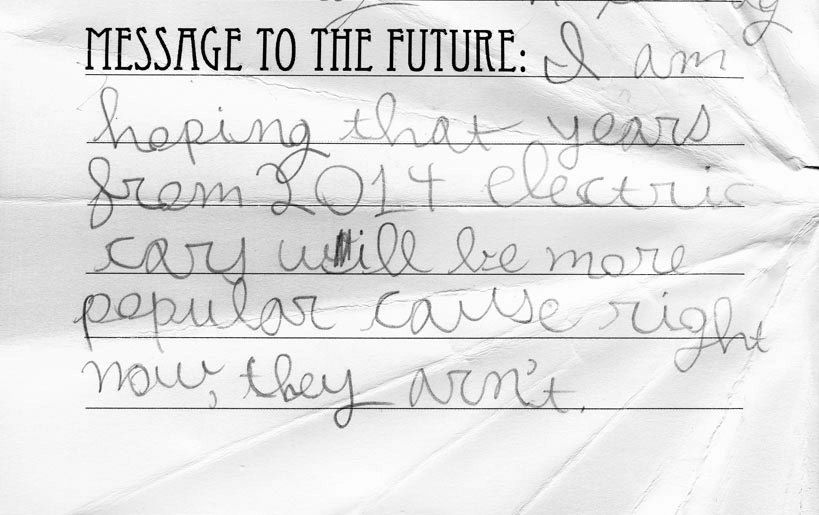 MESSAGE TO THE FUTURE: I am
hoping that years
from 2014 electric
cars will be more
popular cause right
now, they arn't.